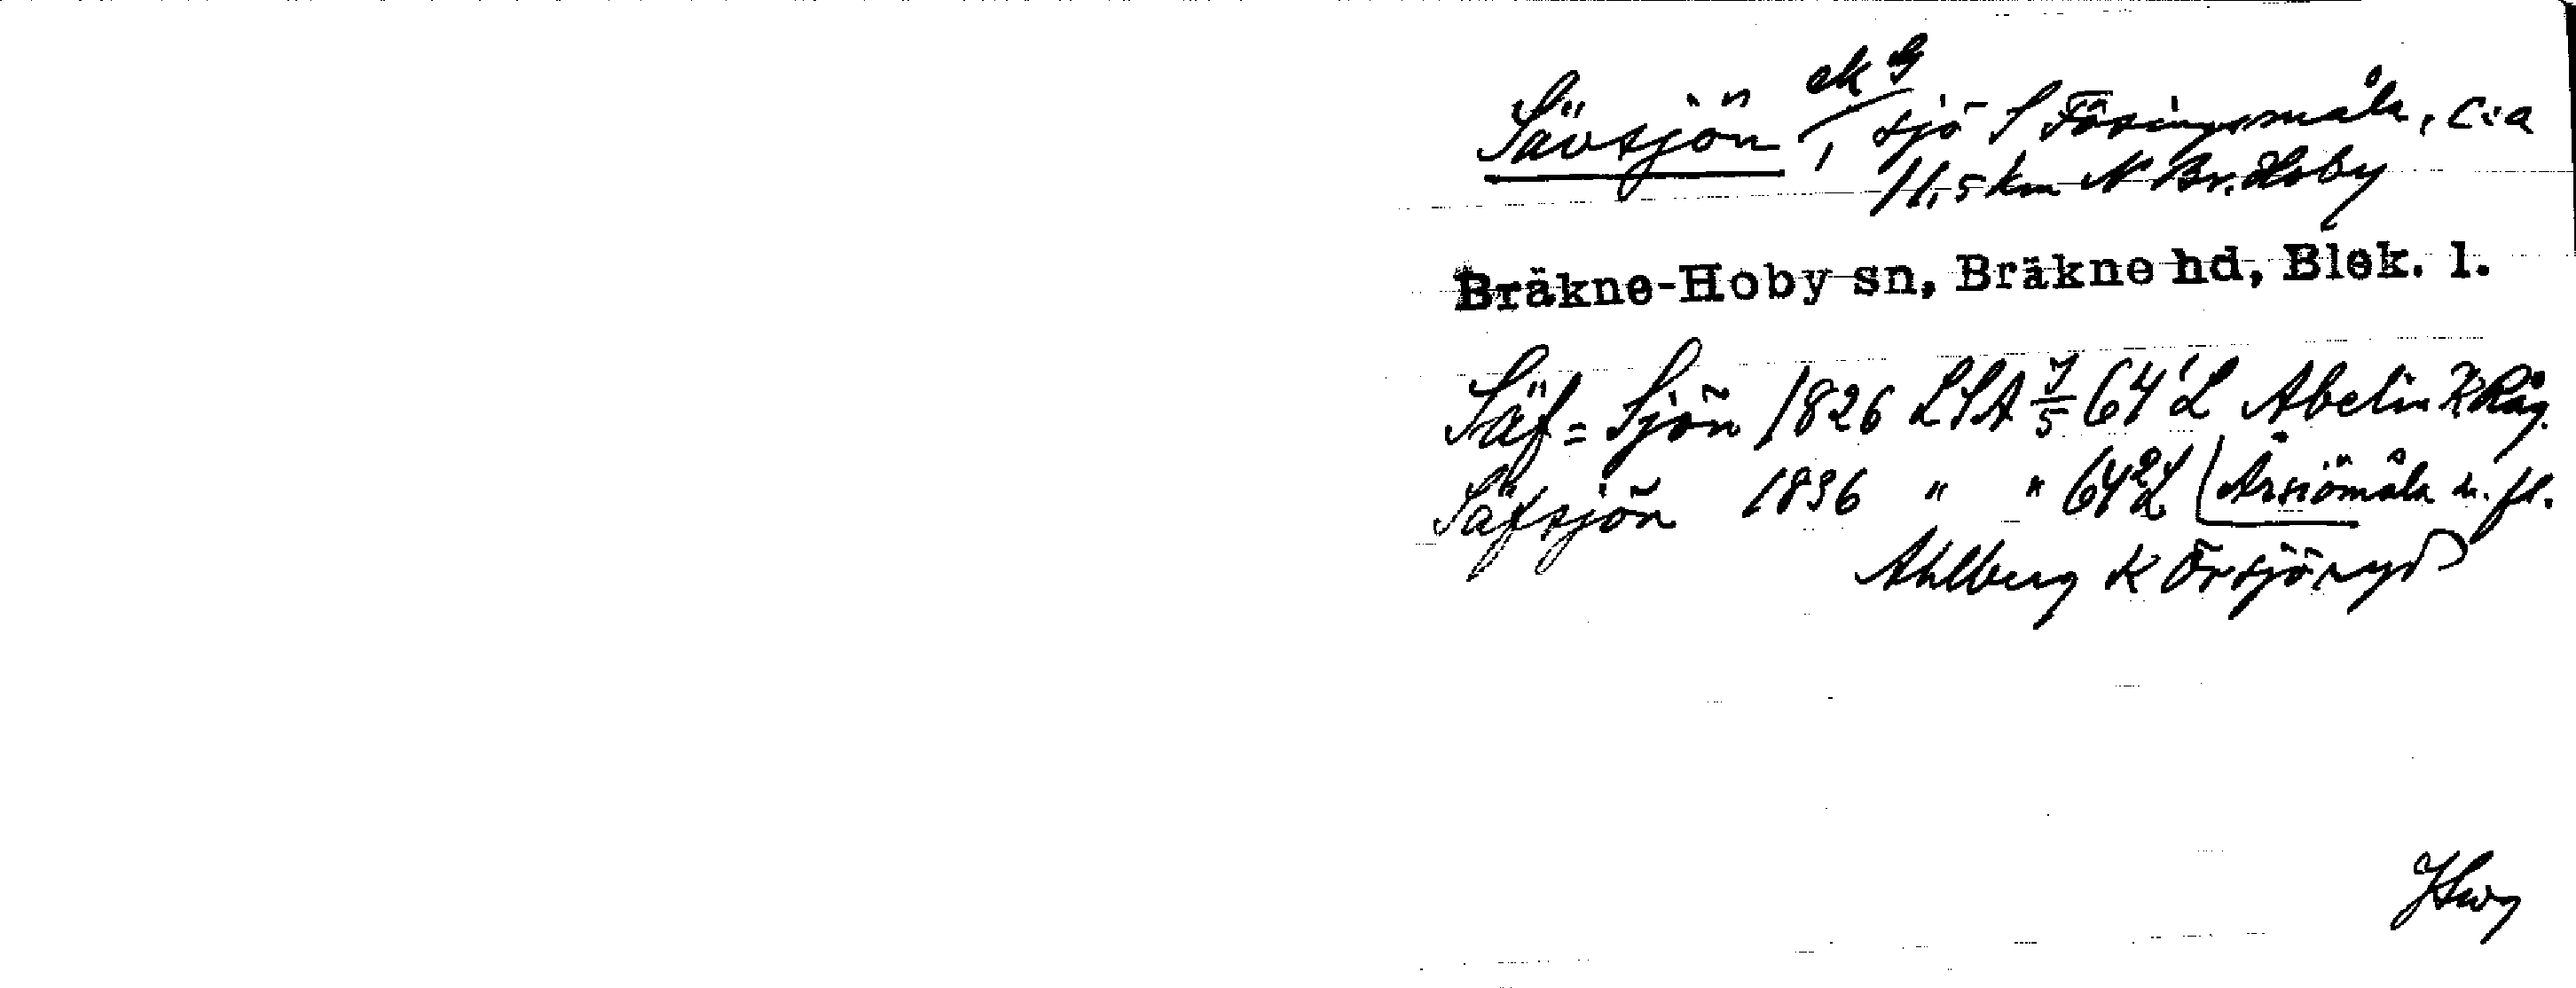 Sävsjön ek G, sjö S Fösingsmåla, c:a
11,5 km N Br. Hoby
Bräkne-Hoby sn, Bräkne hd, Blek. l.
Säf=Sjön 1826 LSA 7/5 64¹ L Abelin K Råg.
Säfsjön 1836 " " 64² L (Årsiömåla m. fl.
Ahlberg K Örsjöryd)